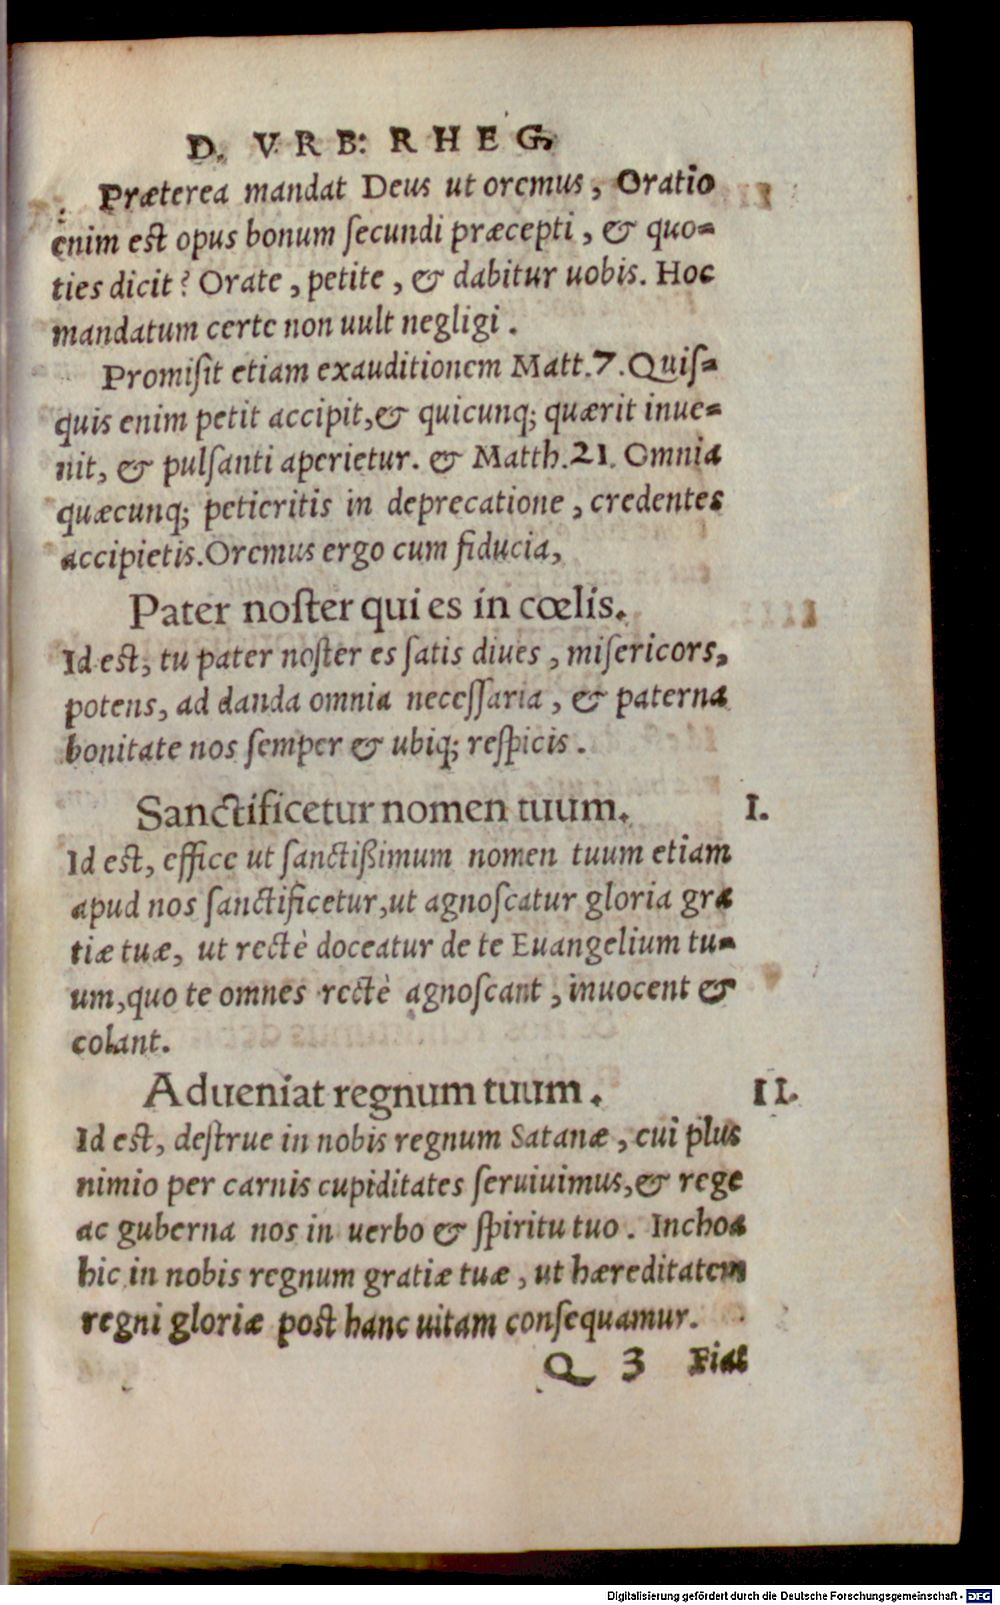 D. VRB: RHEG.
Præterea mandat Deus ut oremus, Oratio
enim est opus bonum ſecundi præcepti, & quo=
ties dicit? Orate, petite, & dabitur uobis. Hoc
mandatum certe non uult negligi.
Promiſit etiam exauditionem Matt.7. Quiſ=
quis enim petit accipit, & quicunq; quærit inue=
nit, & pulſanti aperietur. & Matth.21. Omnia
quæcunq; petieritis in deprecatione, credentes
accipietis. Oremus ergo cum fiducia,
Pater noſter qui es in cœlis.
Id est, tu pater noſter es ſatis diues, miſericors,
potens, ad danda omnia neceſſaria, & paterna
bonitate nos ſemper & ubiq; reſpicis.
Sanctificetur nomen tuum. I.
Id est, effice ut ſanctißimum nomen tuum etiam
apud nos ſanctificetur, ut agnoſcatur gloria gra
tiæ tuæ, ut rectè doceatur de te Euangelium tu=
um, quo te omnes rectè agnoſcant, inuocent &
colant.
Adueniat regnum tuum. II.
Id est, deſtrue in nobis regnum Satanæ, cui plus
nimio per carnis cupiditates ſeruiuimus, & rege
ac guberna nos in uerbo & ſpiritu tuo. Inchoa
hic in nobis regnum gratiæ tuæ, ut hæreditatem
regni gloriæ post hanc uitam conſequamur.
Q 3 Fiat
Digitalisierung gefördert durch die Deutsche Forschungsgemeinschaft - DFG